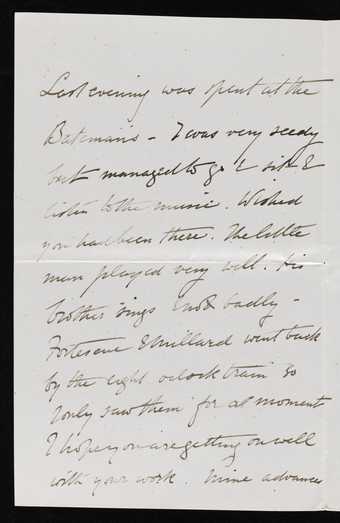 Last evening was spent at the
Batemans – I was very seedy
but managed to go & sit &
listen to the music. Wished
you had been there. The little
man played very well. His
brother sings not badly –
Fortescue & Millard went back
by the eight o'clock train so
I only saw them for a moment
I hope you are getting on well
with your work. Mine advances